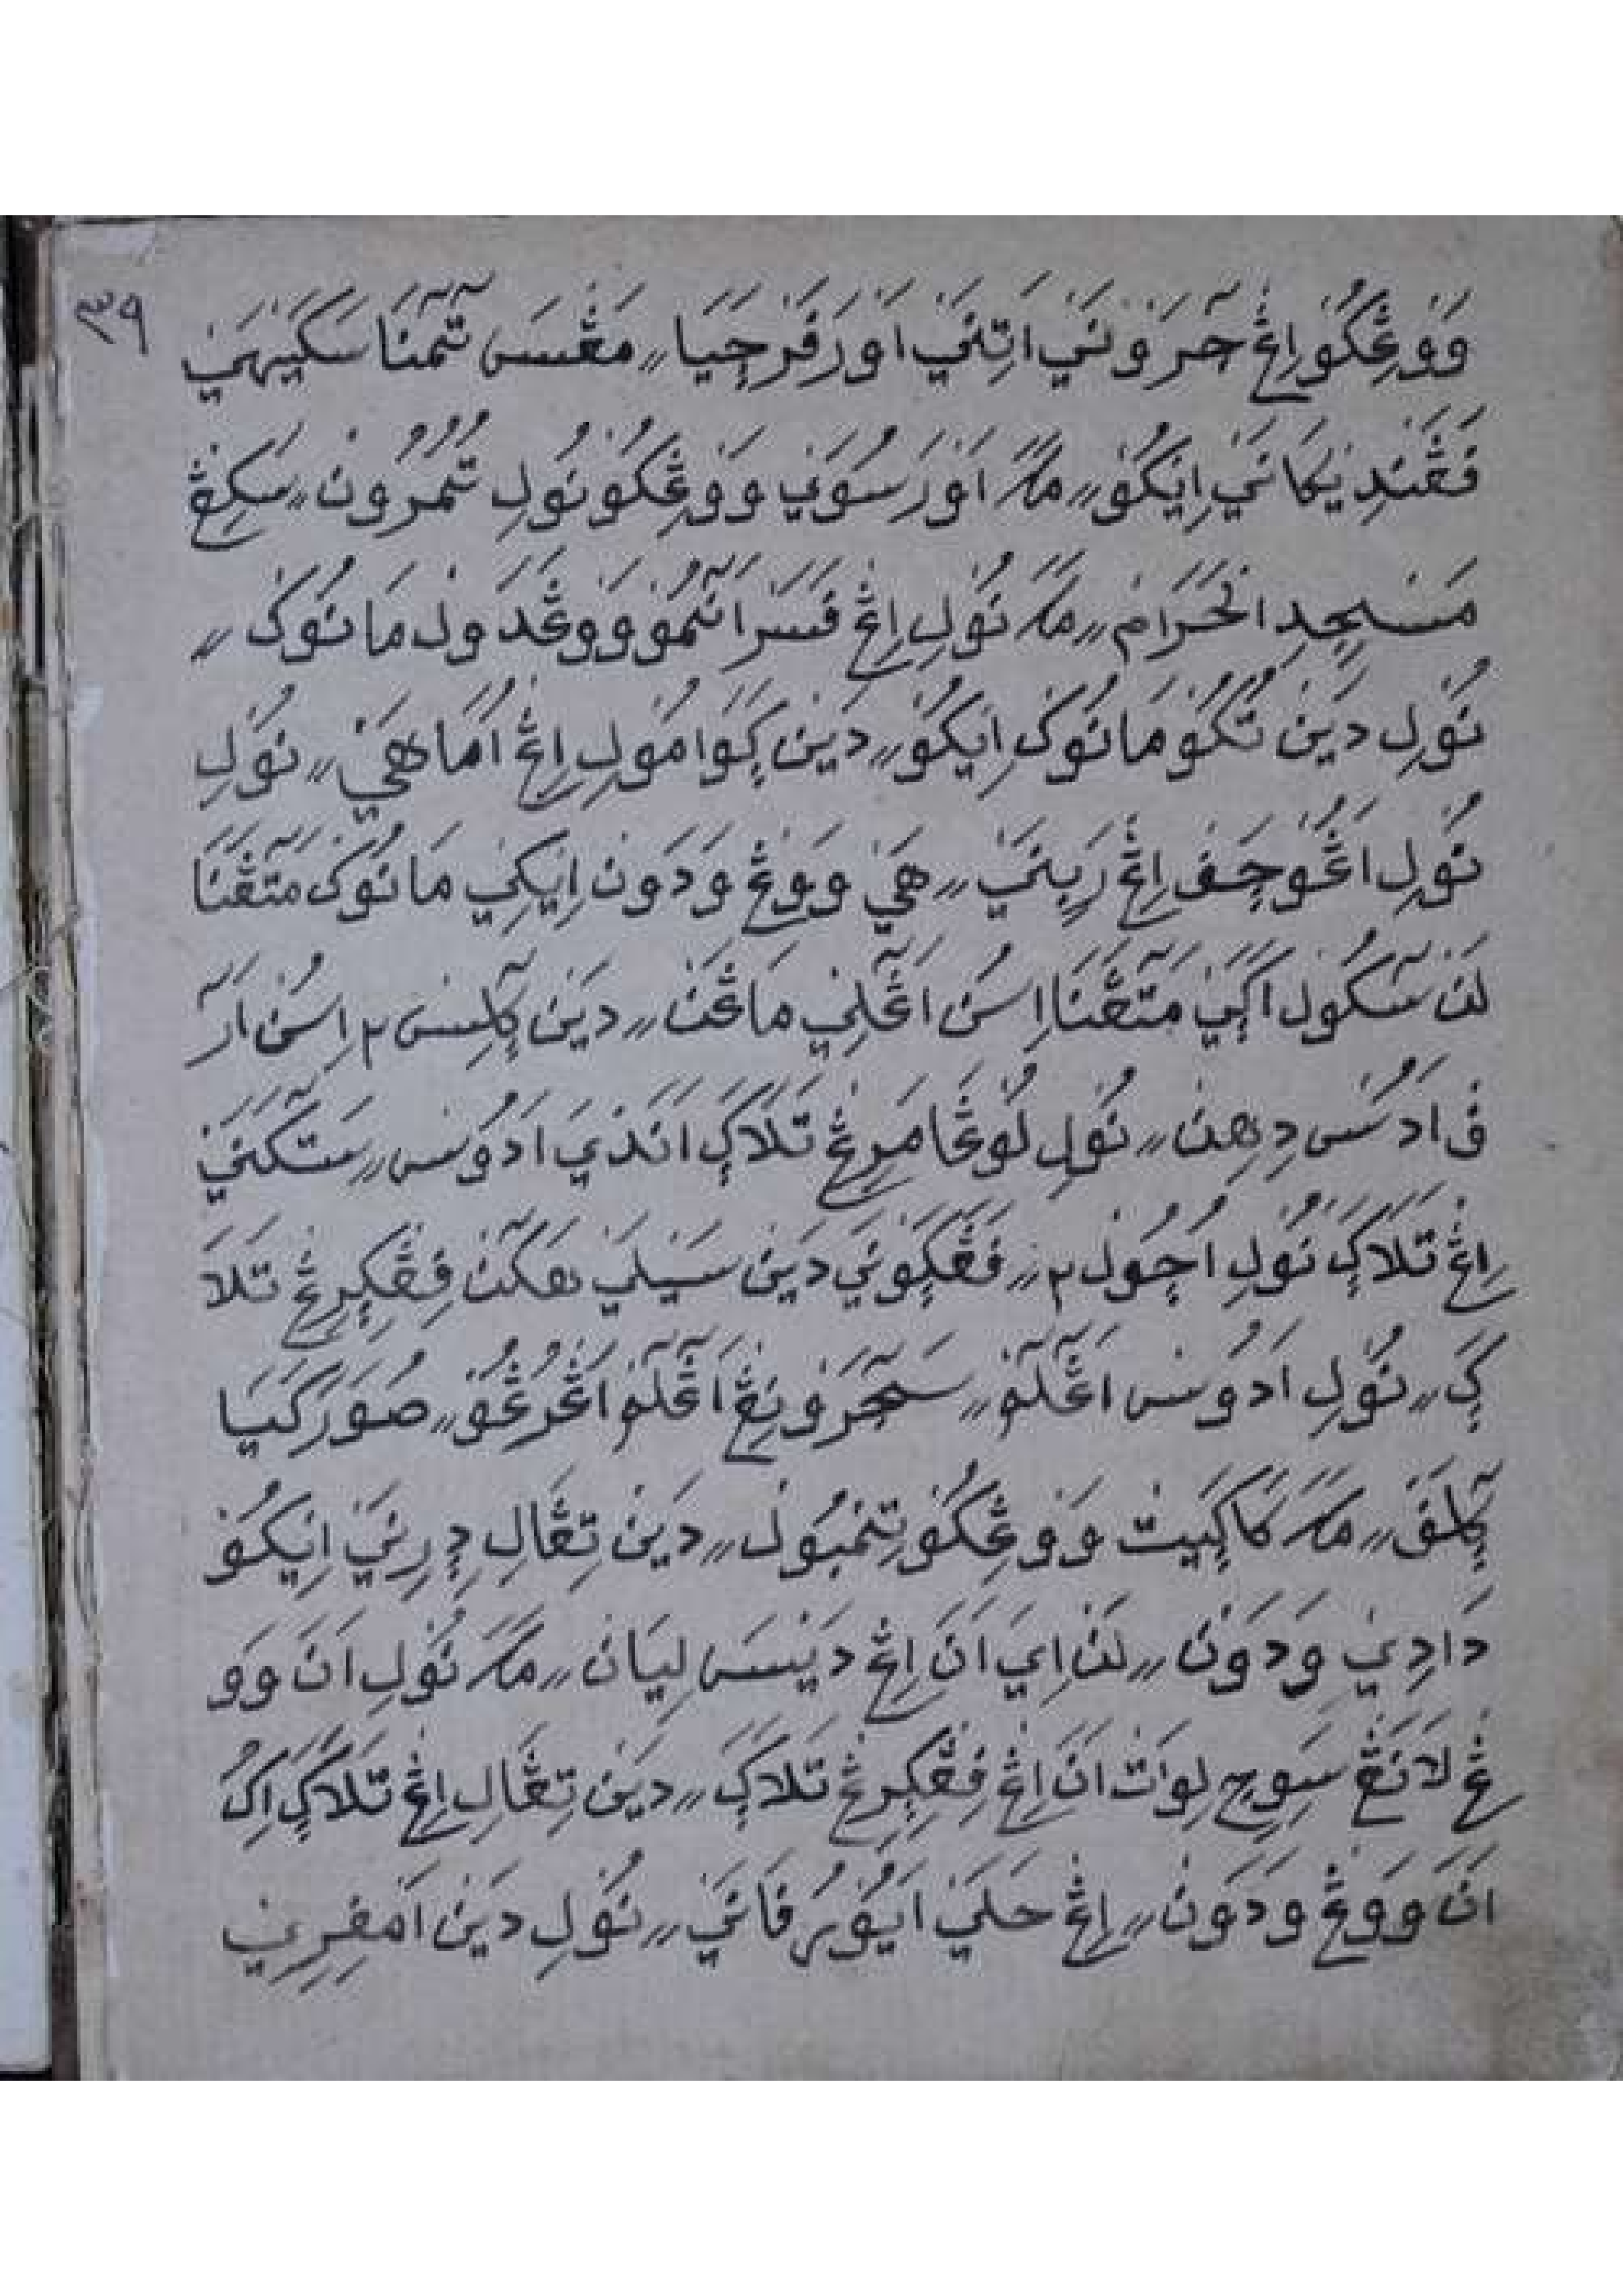 ٣٩
وَوڠِكُوْ اِڠْ جٓرَوْنَيْ اَتِنَيْ اَوْرَ فَرْچَيَا ۔ مَڠْسَ تٓمٓنَا سَكَيْهَيْ
فَڠَنْدِيْكَانَيْ اِيْكُوْ ۔ مَكَ اَوْرَ سُوَيْ وَوْڠِكُوْ نُوْلِ تُمُرُوْنْ ۔ سَكِڠْ
مَسْجِدِ الْحَرَامْ ۔ مَكَ نُوْلِ اِڠْ فَسَرْ اَنٓمُوْ وَوْڠْ دَوَلْ مَانُوْكْ ۔
نُوْلِ دَيْنْ تُكُوْ مَانُوْكْ اِيْكُوْ ۔ دَيْنْ ڮَوَا مُوْلِ اِڠْ اُمَاهَيْ ۔ نُوْلِ
نُوْلِ اَڠُوْچَفْ اِڠْ رَبِنَيْ ۔ هَيْ وَوْڠْ وَدَوْنْ اِيْكِيْ مَانُوْكْ مَتٓڠَنَا
لَنْ سٓكُوْلْ اَڮَيْ مَتٓڠَنَا اِسُنْ اَڠٓلِيْ مَاڠَنْ ۔ دَيْنْ ڮٓلِسْ ٢ اِسُنْ اَرٓ
فْ اَدُسْ دِهِنْ ۔ نُوْلِ لُوْڠَا مَرِڠْ تَلَاڮَ اَنَدْيَ اَدُوْسْ ۔ سَتٓكَنَيْ
اِڠْ تَلَاڮَ نُوْلِ اُچُوْلْ ٢ ۔ فَڠَڮَوْنَيْ دَيْنْ سَيْلَيْهَكٓنْ فِڠِڮِرِڠْ تَلَا
ڮَ ۔ نُوْلِ اَدُوْسْ اَڠٓلَوْ ۔ سَجٓرَوْنِڠْ اَڠٓلَوْ اَڠُرُڠُوْ ۔ صُوَرَ كَيَا
ڮٓلَفْ ۔ مَكَ كَاڮَيْتْ وَوْڠِكُوْ تِنْمبُوْلْ ۔ دَيْنْ تِڠَالِ دِرِنَيْ اِيْكُوْ
دَادِيْ وَدَوْنْ ۔ لَنْ اِيَ اَنَ اِڠْ دَيْسَ لِيَانْ ۔ مَكَ نُوْلِ اَنَ وَوْ
ڠْ لَانَڠْ سَوِجِ لِوَاتْ اَنَ اِڠْ فِڠِڮِرِڠْ تَلَاڮَ ۔ دَيْنْ تِڠَالِ اِڠْ تَلَاڮَ اِكُ
اَنَ وَوْڠْ وَدَوْنْ ۔ اِڠْ حَلَيْ اَيُوْ رُفَانَيْ ۔ نُوْلِ دَيْنْ اَمْفِرِيْ